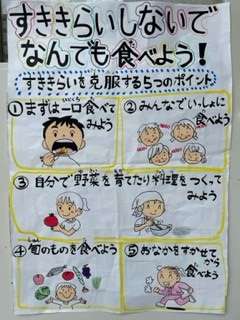 すききらいしないで
なんでも食べよう!
すききらいを克服する5つのポイント
①まずは一口食べて
みよう
②みんなでいっしょに
食べよう
③自分で野菜を育てたり料理をつくって
みよう
④旬のものを食べよう
⑤おなかをすかせて
から
食べよう